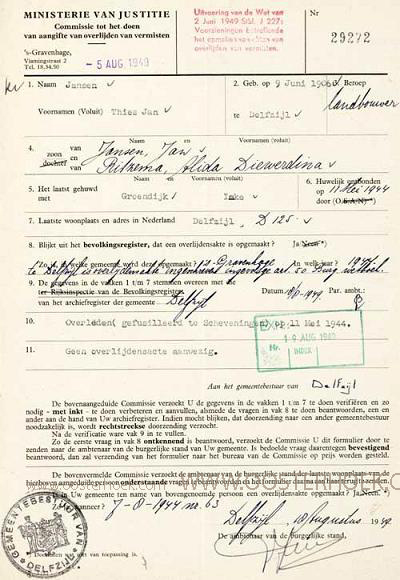 MINISTERIE VAN JUSTITIE
Commissie tot het doen
van aangifte van overlijden van vermisten
's-Gravenhage,
Tel. 18.34.50
- 5 AUG 1949
Uitvoering van de Wet van
2 Juni 1949 Stbl. J 227:
Voorzieningen betreffende
het opmaken van akten van
overlijden van vermisten.
Nr
29272
1. Naam Jansen
2. Geb. op 9 Juni 1906
3. Beroep
landbouwer
Voornamen (Voluit) Thies Jan
te Delfzijl
4. zoon dochter van Naam en Voornamen (voluit)
Jansen, Jan
en
van Ritzema, Alida Diewerdina
5. Het laatst gehuwd met Naam en Voornamen (voluit)
Groendijk Imke
6. Huwelijk gesloten
op 11 Mei 1944
door (O.S.A.N)
7. Laatste woonplaats en adres in Nederland Delfzijl, D 125.
8. Blijkt uit het bevolkingsregister, dat een overlijdensakte is opgemaakt? Ja/Neen
Zo ja, in welke gemeente werd deze opgemaakt? 's-Gravenhage In welk jaar?
te Delfzijl is overlijdensakte ingeschreven ingevolge art. 50 Burg. Wetboek.
9. De gegevens in de vakken 1 t/m 7 stemmen overeen met die
ter Rijksinspectie van de Bevolkingsregisters
van het archiefregister der gemeente Delfzijl
Datum: Par. ambt.:
10. Overleden( gefusilleerd te Scheveningen) op 11 mei 1944.
11. Geen overlijdensakte aanwezig.
EXP.
19 AUG 1949
Nr.
INDEX
Aan het gemeentebestuur van Delfzijl
De bovenaangeduide Commissie verzoekt U de gegevens in de vakken 1 t/m 7 te doen verifiëren en zo
nodig - met inkt - te doen verbeteren en aanvullen, alsmede de vragen in vak 8 te doen beantwoorden, een en
ander aan de hand van Uw archiefregister. Indien mocht blijken, dat doorzending naar een ander gemeentebestuur
noodzakelijk is, wordt rechtstreekse doorzending verzocht.
Na de verificatie ware vak 9 in te vullen.
Zo de eerste vraag in vak 8 ontkennend is beantwoord, verzoekt de Commissie U dit formulier door te zenden
aan de ambtenaar van de burgerlijke stand van Uw gemeente. Is bedoelde vraag daarentegen bevestigend
beantwoord, dan zal terzending van het formulier naar het bureau van de Commissie op prijs worden gesteld.
De bovenvermelde Commissie verzoekt de ambtenaar van de burgerlijke stand der laatste woonplaats van de
hierboven aangeduide persoon onderstaande vragen te
Is in Uw gemeente ten name van bovengenoemde persoon een overlijdensakte opgemaakt? Ja/Neen.*)
Zo ja, wanneer? 7-8-1944 no. 63
Delfzijl, 10 Augustus 1949
De ambtenaar van de burgerlijke stand,
GEMEENTEBESTUUR VAN DELFZIJL
*) Doorhalen wat niet van toepassing is.